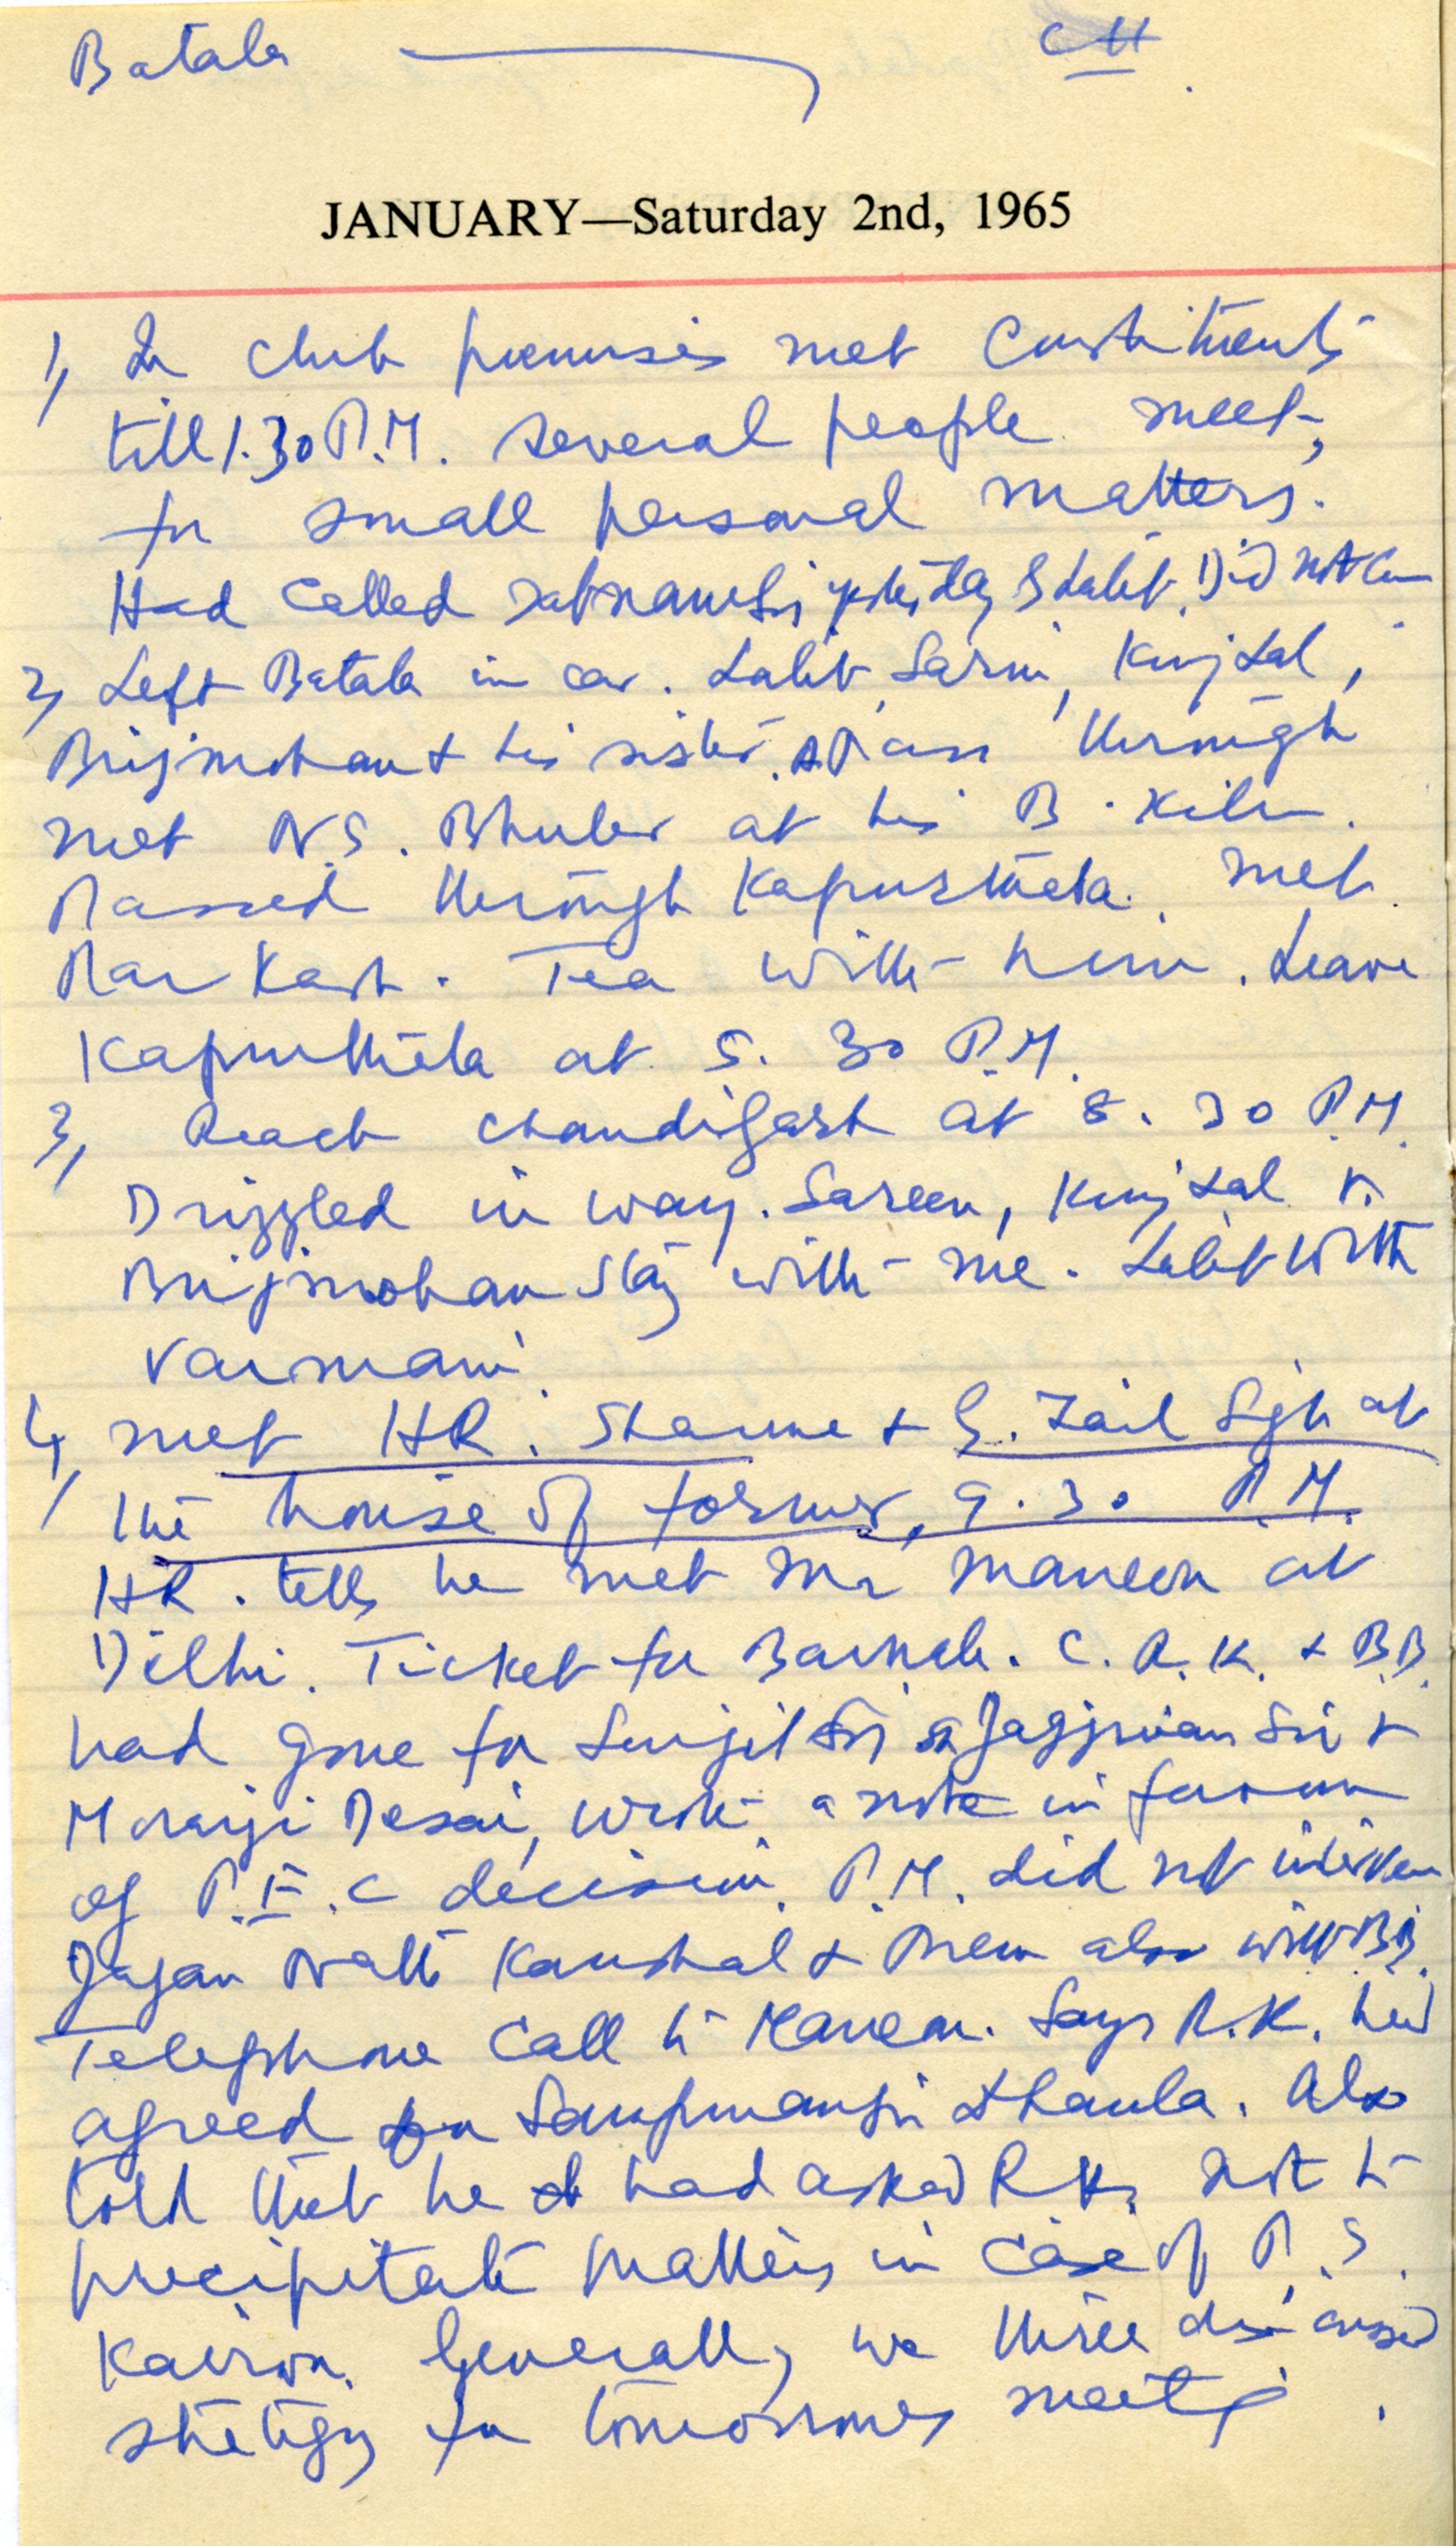 Batala CH
JANUARY—Saturday 2nd, 1965
1, In club premises met Constituents
till 1.30 P.M. several people meet,
for small personal matters.
Had called yesterday & Lalit. Did not
2, Left Batala in car. Lalit, Sarin, Kunj Lal,
Brijmohan & his sister. Pass through
met N.S. Bhuler at his B. Kiln.
Passed through Kapurthala. met
Tea with him. Leave
Kapurthala at 5. 30 P.M.
3, Reach Chandigarh at 8. 30 P.M.
Drizzled in way. Sareen, Kunj Lal &
Brijmohan stay with me. Lalit with
Varmani
4, met HR. Sharma & G. Zail Sgh at
the house of former, 9.30 P.M.
HR. tells he met Mr Maneen at
Delhi. Ticket for Barnala. C. R.K. & B.B.
had gone for Surjit Jagjivan &
Morarji Desai, wrote a note in favour
of P.E.C decision. P.M. did not
Jagan Nath Kaushal & Prem also with BB.
Telephone Call to Maneen. Says R.K. had
agreed for Dhaula. Also
told that he had asked R K. not to
precipitate matters in case of P.S.
Kairon. Generally we three discussed
strategy for tomorrows meeting.